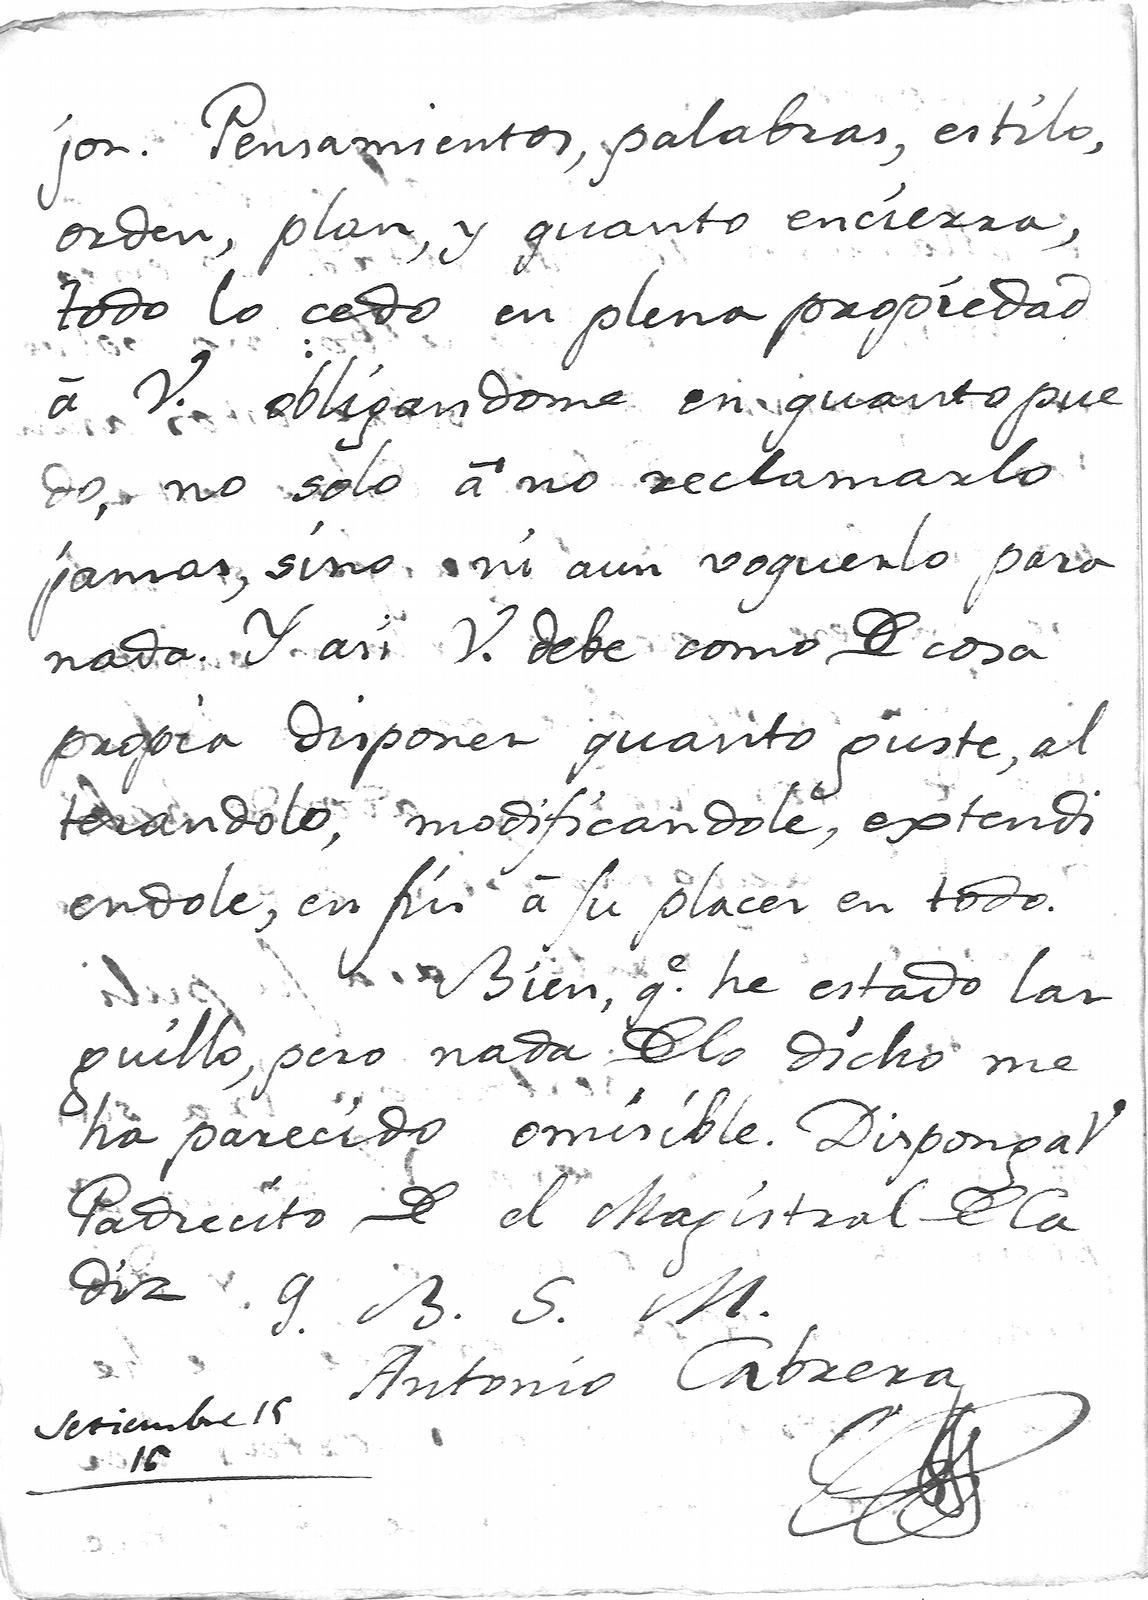 jor. Pensamientos, palabras, estilo,
orden, plan, y quanto encierra,
todo lo cedo en plena propiedad
à V. obligandome en quanto pue
do, no sòlo à no reclamarlo
jamas, sino ni aun voquerlo para
nada. Y asi V. debe como de cosa
propia disponer quanto guste, al
terandolo, modificandole, extendi
endole, en fin à su placer en todo.
Bien, qe. he estado lar
guillo, pero nada de lo dicho me
ha parecido omisible. Disponga V
Padrecito de el Magistral de Ca
diz q. B. S. M.
Antonio Cabrera
Setiembre 15